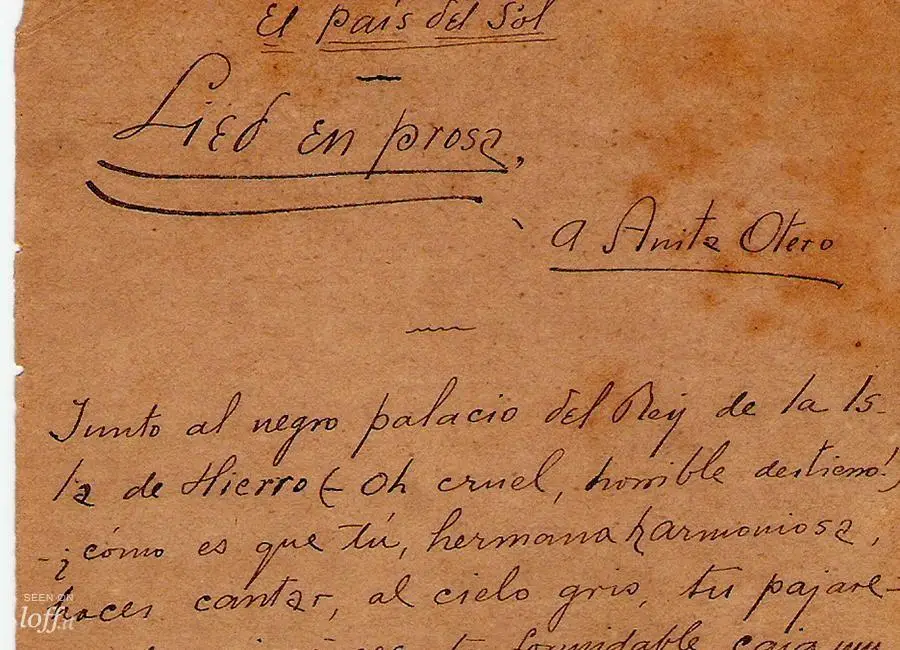 El país del Sol
Lied en prosa,
a Anita Otero
Junto al negro palacio del Rey de la Is-
la de Hierro (- Oh cruel, horrible destierro!)
- ¿cómo es que tú, hermana harmoniosa,
haces cantar, al cielo gris, tu pajare-
formidable caja mu
SEEN ON
loff.it